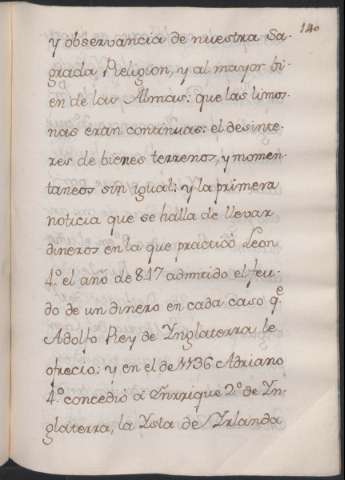 140
y observancia de nuestra Sa-
grada Religion, y al mayor bi-
en de las Almas: que las limos-
nas eran continuas: el desinte-
res de bienes terrenos, y momen-
taneos sin igual: y la primera
noticia que se halla de llevar
dineros en la que practicó Leon
4.º el año de 847 admitido el feu-
do de un dinero en cada casa q.e
Adolfo Rey de Ynglaterra le
ofrecio; y en el de 1136 Adriano
4.º concedió á Enrrique 2.º de Yn-
glaterra, la Ysla de Yrlanda